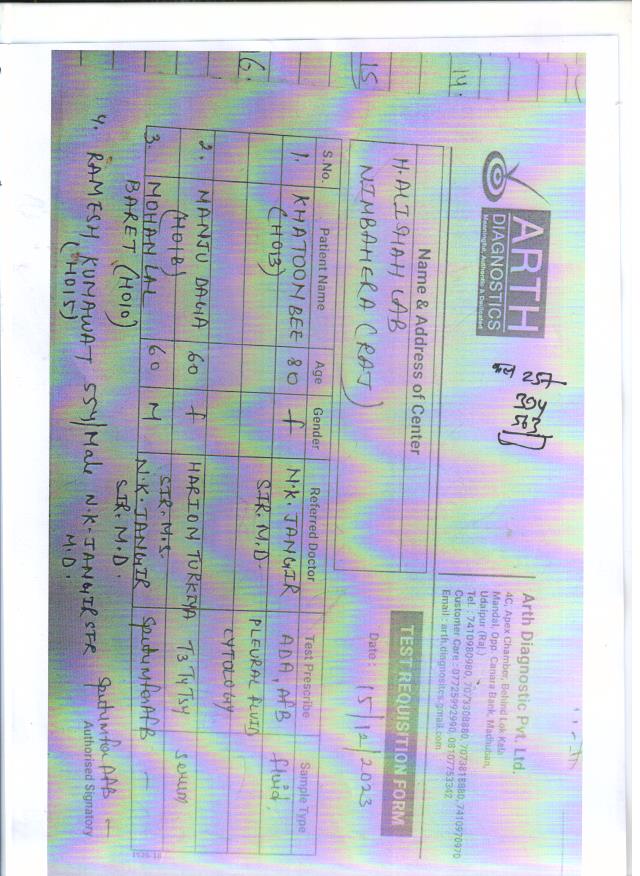 ARTH
DIAGNOSTICS
Meaningful, Authentic & Dedicated
257
Arth Diagnostic Pvt. Ltd.
4C, Apex Chamber, Behind Lok Kala
Mandal, Opp. Canara Bank, Madhuban,
Udaipur (Raj.)
Tel : 7410980980, 7073308880, 7073818880, 7410970970
Customer Care : 07725992990, 08107753342
Email : arth.diagnosites@gmail.com
Name & Address of Center
H. ALI SHAH LAB
NIMBAHERA (RAJ)
TEST REQUISITION FORM
Date : 15/12/2023
S.No. Patient Name Age Gender Referred Doctor Test Prescribe Sample Type
1. KHATOOMBEE 80 f N.K. JANGIR ADA, AFB fluid,
(H013) SIR. M.D. PLEURAL FLUID
CYTOLOGY
2. MANJU DAGA 60 f HARION TURKIYA T3 T4 TSH serum
(H018) SIR. M.S.
3. MOHAN LAL 60 M N.K. JANGIR Sputum for AFB —
BARET (H010) SIR. M.D.
4. RAMESH KUMAWAT 55y/Male N.K. JANGIR SIR Sputum for AFB —
(H015) M.D.
Authorised Signatory
14.
15
16.